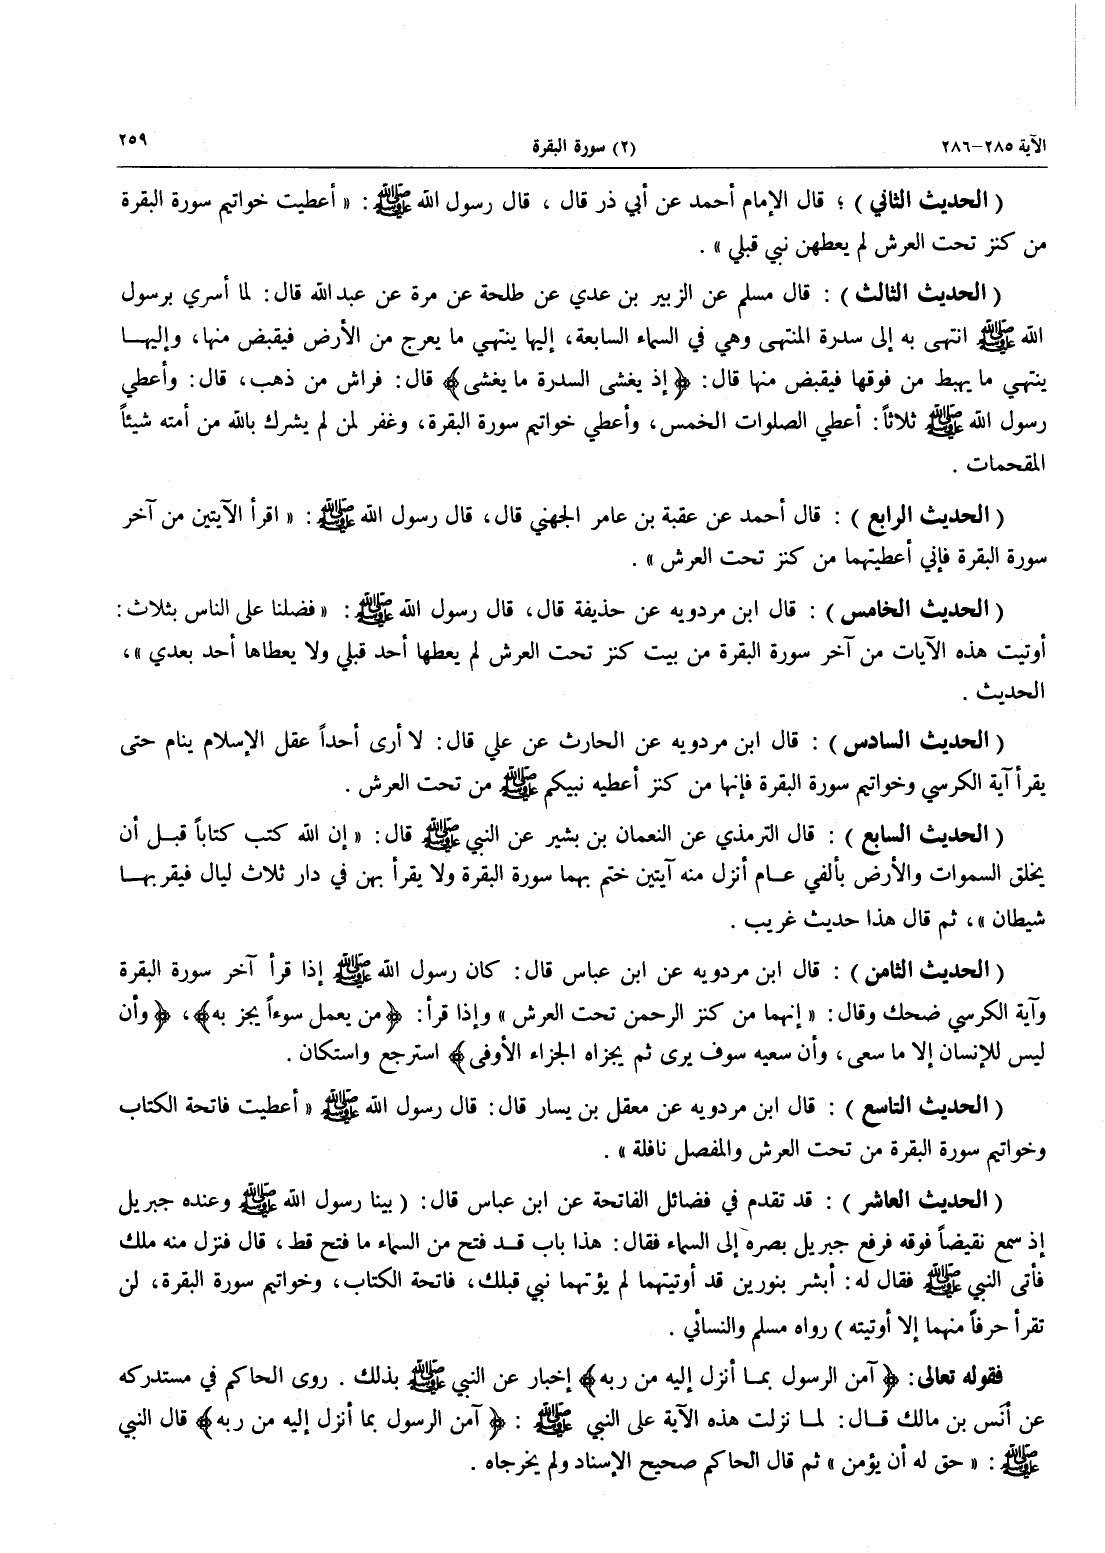 الآية ٢٨٥-٢٨٦
(٢) سورة البقرة
٢٥٩
( الحديث الثاني ) ؛ قال الإمام أحمد عن أبي ذر قال ، قال رسول الله ﷺ : « أعطيت خواتيم سورة البقرة
من كنز تحت العرش لم يعطهن نبي قبلي » .
( الحديث الثالث ) : قال مسلم عن الزبير بن عدي عن طلحة عن مرة عن عبد الله قال : لما أسري برسول
الله ﷺ انتهى به إلى سدرة المنتهى وهي في السماء السابعة ، إليها ينتهي ما يعرج من الأرض فيقبض منها ، وإليهـا
ينتهي ما يهبط من فوقها فيقبض منها قال : ﴿ إذ يغشى السدرة ما يغشى ﴾ قال : فراش من ذهب ، قال : وأعطي
رسول الله ﷺ ثلاثاً : أعطي الصلوات الخمس ، وأعطي خواتيم سورة البقرة ، وغفر لمن لم يشرك بالله من أمته شيئاً
المقحمات .
( الحديث الرابع ) : قال أحمد عن عقبة بن عامر الجهني قال ، قال رسول الله ﷺ : « اقرأ الآيتين من آخر
سورة البقرة فإني أعطيتهما من كنز تحت العرش » .
( الحديث الخامس ) : قال ابن مردويه عن حذيفة قال ، قال رسول الله ﷺ : « فضلنا على الناس بثلاث :
أوتيت هذه الآيات من آخر سورة البقرة من بيت كنز تحت العرش لم يعطها أحد قبلي ولا يعطاها أحد بعدي » ،
الحديث .
( الحديث السادس ) : قال ابن مردويه عن الحارث عن علي قال : لا أرى أحداً عقل الإسلام ينام حتى
يقرأ آية الكرسي وخواتيم سورة البقرة فإنها من كنز أعطيه نبيكم ﷺ من تحت العرش .
( الحديث السابع ) : قال الترمذي عن النعمان بن بشير عن النبي ﷺ قال : « إن الله كتب كتاباً قبـل أن
يخلق السموات والأرض بألفي عـام أنزل منه آيتين ختم بهما سورة البقرة ولا يقرأ بهن في دار ثلاث ليال فيقربهـا
شيطان » ، ثم قال هذا حديث غريب .
( الحديث الثامن ) : قال ابن مردويه عن ابن عباس قال : كان رسول الله ﷺ إذا قرأ آخر سورة البقرة
وآية الكرسي ضحك وقال : « إنهما من كنز الرحمن تحت العرش » وإذا قرأ : ﴿ من يعمل سوءاً يجز به ﴾ ، ﴿ وأن
ليس للإنسان إلا ما سعى ، وأن سعيه سوف يرى ثم يجزاه الجزاء الأوفى ﴾ استرجع واستكان .
( الحديث التاسع ) : قال ابن مردويه عن معقل بن يسار قال : قال رسول الله ﷺ « أعطيت فاتحة الكتاب
وخواتيم سورة البقرة من تحت العرش والمفصل نافلة » .
( الحديث العاشر ) : قد تقدم في فضائل الفاتحة عن ابن عباس قال : ( بينا رسول الله ﷺ وعنده جبريل
إذ سمع نقيضاً فوقه فرفع جبريل بصره إلى السماء فقال : هذا باب قـد فتح من السماء ما فتح قط ، قال فنزل منه ملك
فأتى النبي ﷺ فقال له : أبشر بنورين قد أوتيتهما لم يؤتهما نبي قبلك ، فاتحة الكتاب ، وخواتيم سورة البقرة ، لن
تقرأ حرفاً منهما إلا أوتيته ) رواه مسلم والنسائي .
فقوله تعالى : ﴿ آمن الرسول بمـا أنزل إليه من ربه ﴾ إخبار عن النبي ﷺ بذلك . روى الحاكم في مستدركه
عن أنَس بن مالك قـال : لمـا نزلت هذه الآية على النبي ﷺ : ﴿ آمن الرسول بما أنزل إليه من ربه ﴾ قال النبي
ﷺ : « حق له أن يؤمن » ثم قال الحاكم صحيح الإسناد ولم يخرجاه .